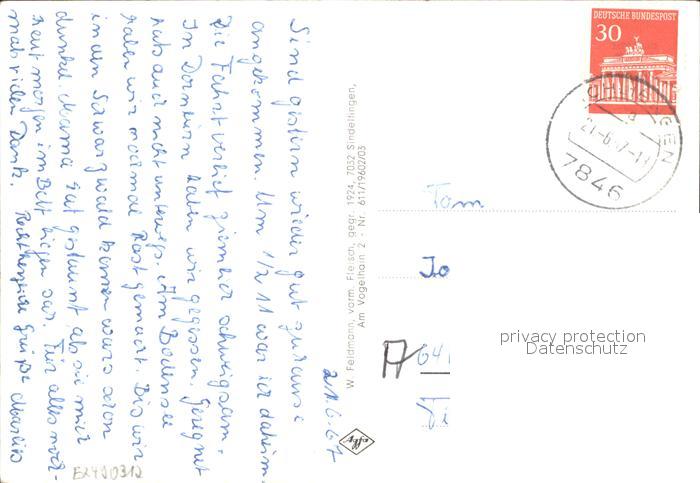 Sind gestern wieder gut zuhause
angekommen. Um 1/2 11 war ich daheim.
Die Fahrt verlief ziemlich schweigsam.
In Dornbirn haben wir gegessen. Geregnet
hats auch nicht unterwegs. Am Bodensee
haben wir nochmal Rast gemacht. Bis wir
in den Schwarzwald kamen wars schon
dunkel. Mama hat gestaunt, als sie mich
heut morgen im Bett liegen sah. Für alles noch-
mals vielen Dank. Recht herzliche Grüße
21.6.67
E2490312
W. Feldmann, vorm. Fleisch, gegr. 1924, 7032 Sindelfingen,
Am Vogelhain 2 - Nr. 611/19602/03
effby
DEUTSCHE BUNDESPOST
30
7846
Fam
Jo
A 641
privacy protection
Datenschutz